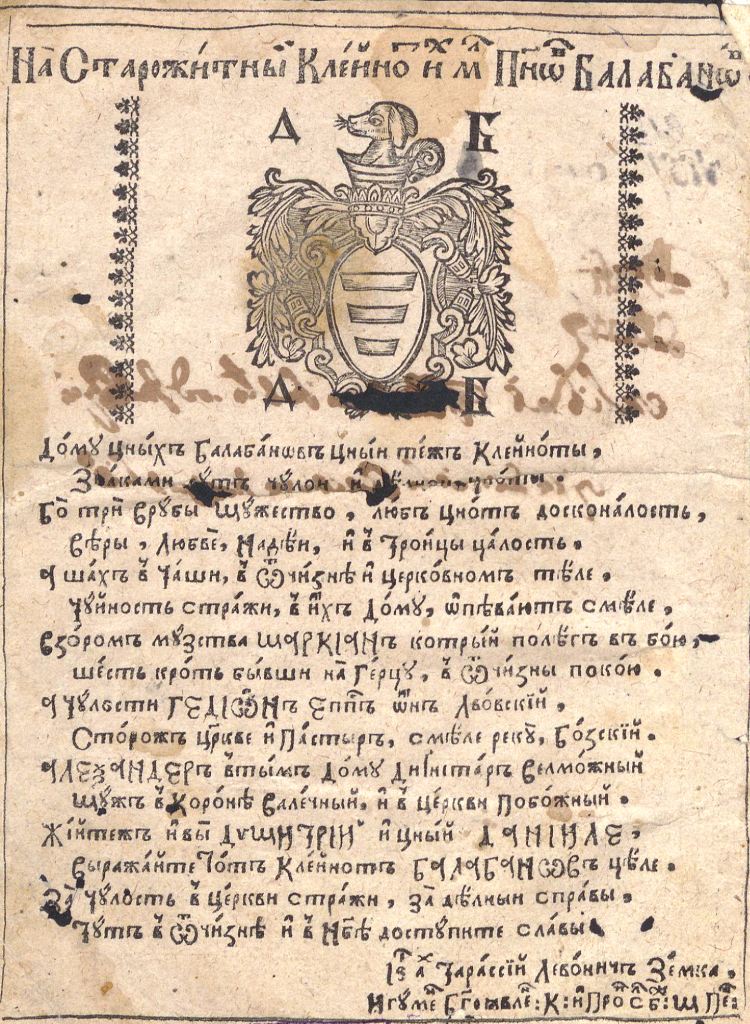 На Старожи́тный Кле́йно их м Пнѡв Балабанѡв
Д Б
Д Б
До́му цны́хъ Балаба́нѡвъ цны́и те́жъ Клейно́ты,
Зна́ками сутъ чу́лои и
Бо три врубы мужество, любъ цнотъ доскона́лость,
Вѣ́ры, Любве, Наде́и, и в Тро́ицы ца́лость.
А шахъ в Ча́ши, в Ѿчи́знѣ и церко́вномъ тѣле,
Чу́йность стра́жи, в и́хъ До́му, ѡпѣва́ютъ смѣ́ле,
Взо́ромъ му́зства МАРКІАНЪ котры́й поле́глъ въ бо́ю,
ше́сть кро́ть бы́вши на Ге́рцу, в Ѿчи́зны поко́ю.
А чу́лости ГЕДІѠНЪ Епппъ ѡнъ Лво́вскій,
Сто́рожъ цркве и Па́стыръ, смѣ́ле реку, Бо́зскій.
АЛЕѮАНДЕРЪ в тымъ До́му Динѣстаръ велмо́жный
Мужъ в Коро́нѣ вале́чный, и в це́ркви Побо́жный.
Жі́йтежъ и вы ДѴМИТРІЙ и цный ДАНІИЛЕ,
Выража́йте то́тъ Кле́йнотъ БАЛАБАНѠВЪ цѣ́ле.
За чу́лость в це́ркви стра́жи, за дѣ́лныи спра́вы,
Тутъ в Ѿчи́знѣ и в Нбѣ досту́пите сла́вы
Тара́ссій Лево́ничъ Зе́мка,
Игуме Бгоявле: К: и Про С Б: М Пе: